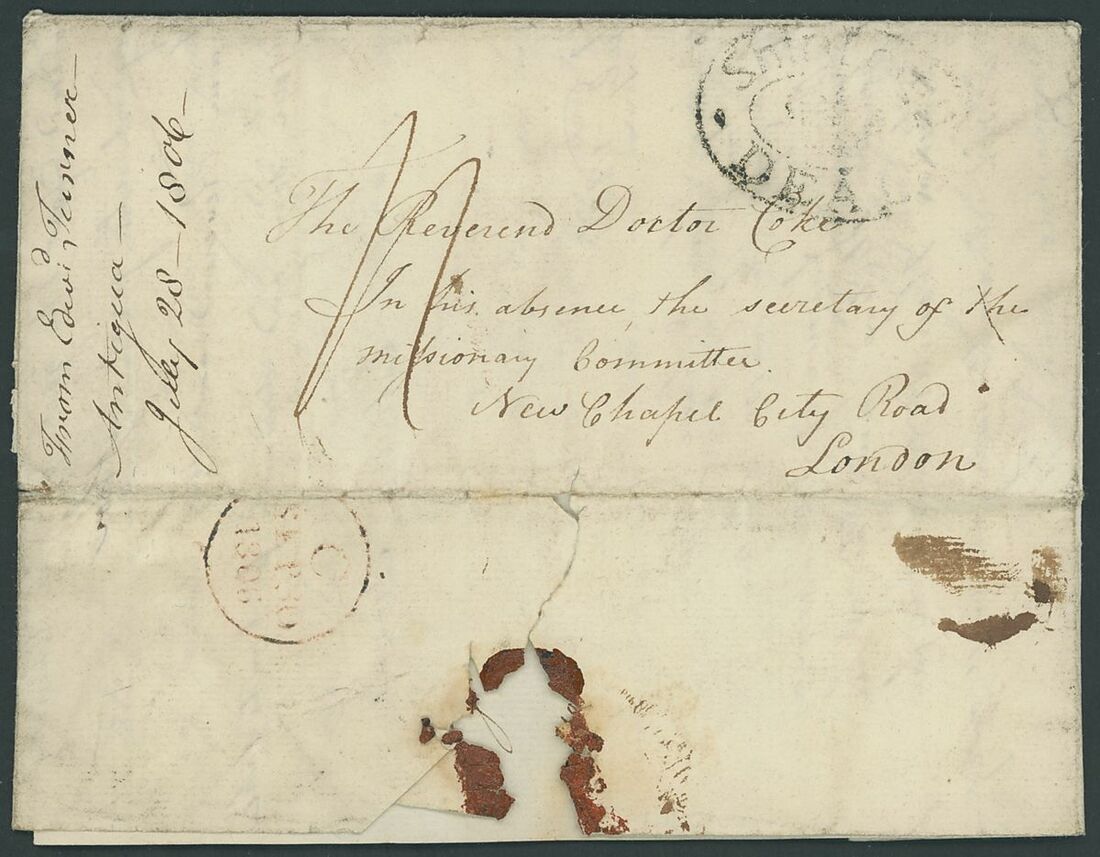 From Edwd Turner
Antigua
July 28 - 1806
DEAL
The Reverend Doctor Coke
In his absence, the secretary of the
missionary Committee.
New Chapel City Road
London
11
C
SEP 30
1806